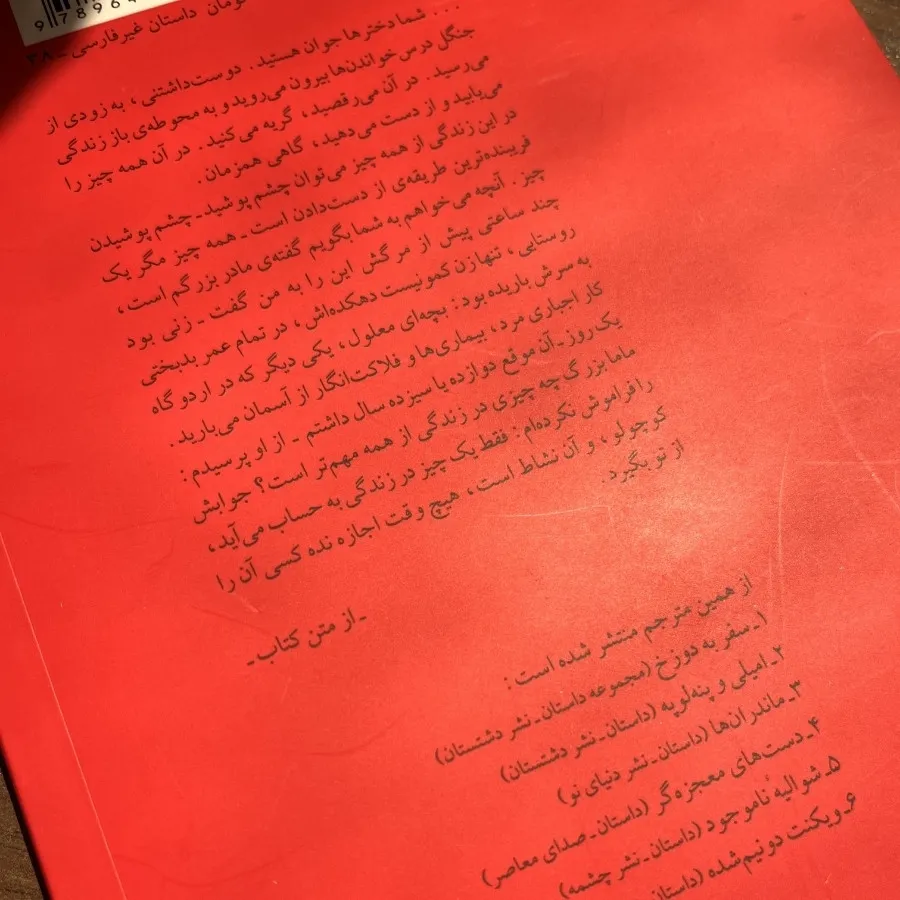 9 78964
تومان داستان غیرفارسی ـ ۳۸
... شما دخترها جوان هستید. دوست‌داشتنی، به زودی از
جنگل درس‌خواندن‌ها بیرون می‌روید و به محوطه‌ی باز زندگی
می‌رسید. در آن می‌رقصید، گریه می‌کنید. در آن همه چیز را
می‌یابید و از دست می‌دهید، گاهی همزمان.
در این زندگی از همه چیز می‌توان چشم پوشید ـ چشم پوشیدن
فریبنده‌ترین طریقه‌ی از دست‌دادن است ـ همه چیز مگر یک
چیز. آنچه می‌خواهم به شما بگویم گفته‌ی مادر بزرگم است،
چند ساعتی پیش از مرگش این را به من گفت ـ زنی بود
روستایی، تنهازن کمونیست دهکده‌اش، در تمام عمر بدبختی
به سرش باریده بود: بچه‌ای معلول، یکی دیگر که در اردوگاه
کار اجباری مرد، بیماری‌ها و فلاکت‌انگار از آسمان می‌بارید.
یک روز ـ آن موقع دوازده یا سیزده سال داشتم ـ از او پرسیدم:
ماما بزرگ چه چیزی در زندگی از همه مهم‌تر است؟ جوابش
را فراموش نکرده‌ام: فقط یک چیز در زندگی به حساب می‌آید،
کوچولو، و آن نشاط است، هیچ وقت اجازه نده کسی آن را
از تو بگیرد.
ـ از متن کتاب ـ
از همین مترجم منتشر شده است:
۱ـ سفر به دوزخ (مجموعه داستان ـ نشر دشتستان)
۲ـ امیلی و پنه‌لوپه (داستان ـ نشر دشتستان)
۳ـ ماندران‌ها (داستان ـ نشر دنیای نو)
۴ـ دست‌های معجزه‌گر (داستان ـ صدای معاصر)
۵ـ شوالیهٔ ناموجود (داستان ـ نشر چشمه)
۶ـ ویکنت دونیم‌شده (داستان